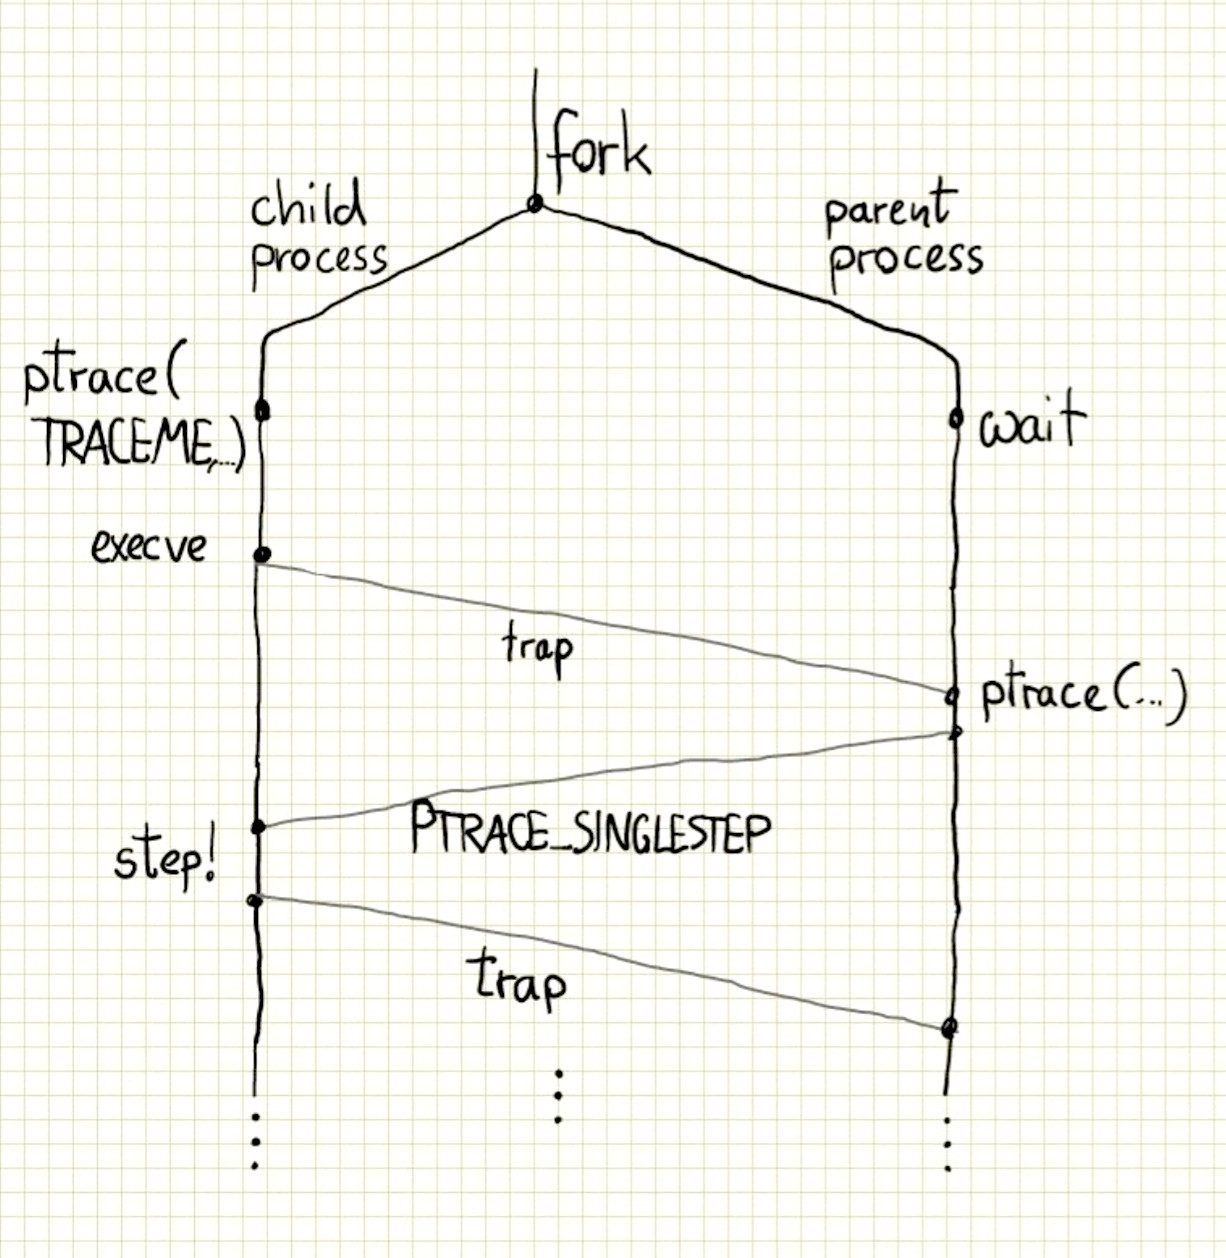 fork
child
process
parent
process
ptrace(
TRACEME,...)
wait
execve
trap
ptrace(...)
PTRACE_SINGLESTEP
step!
trap